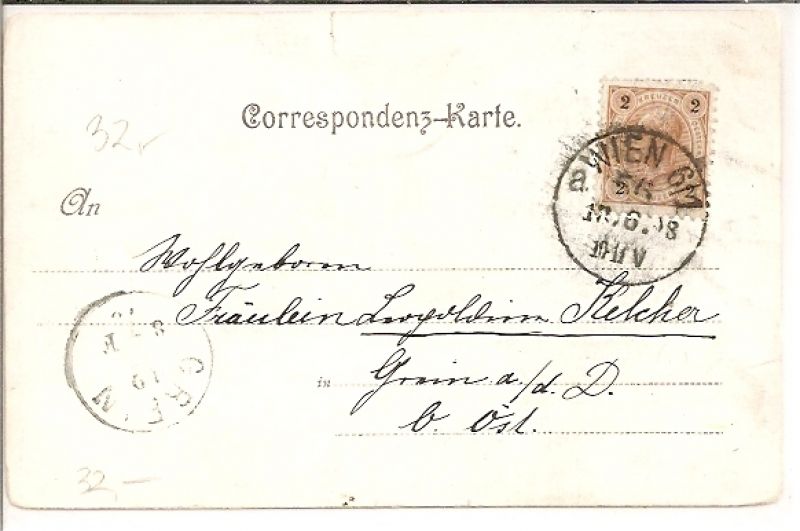 Correspondenz-Karte.
32
2 KREUZER 2
2 2
WIEN 6/1
An
Wohlgeboren
Fräulein Leopoldine Kelcher
in Grein a/d. D.
O. Öst.
GREIN
32,-